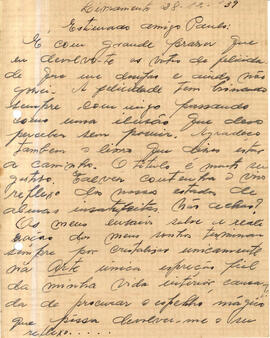 Livramento 28-12-939
Estimado amigo Paulo:
É com grande prazer que
devolvo-te os votos de felicida
de que me desejas e ainda não
A felicidade tem brincado
sempre comigo passando
como uma ilusão que devo
perceber sem possuir. Agradeço
tambem o livro que dizes estar
a caminho. O titulo é muito su
gestivo. Talvez contenha o
reflexo do nosso estado de
almas insatisfeitas. Não achas?
Os meus ensaios sobre a reali
zação dos meus sonhos terminam
sempre por cristalizar unicamente
na Arte unica expressão fiel
da minha vida interior, cansa
da de procurar o espelho mágico
que possa devolver-me o seu
reflexo.....